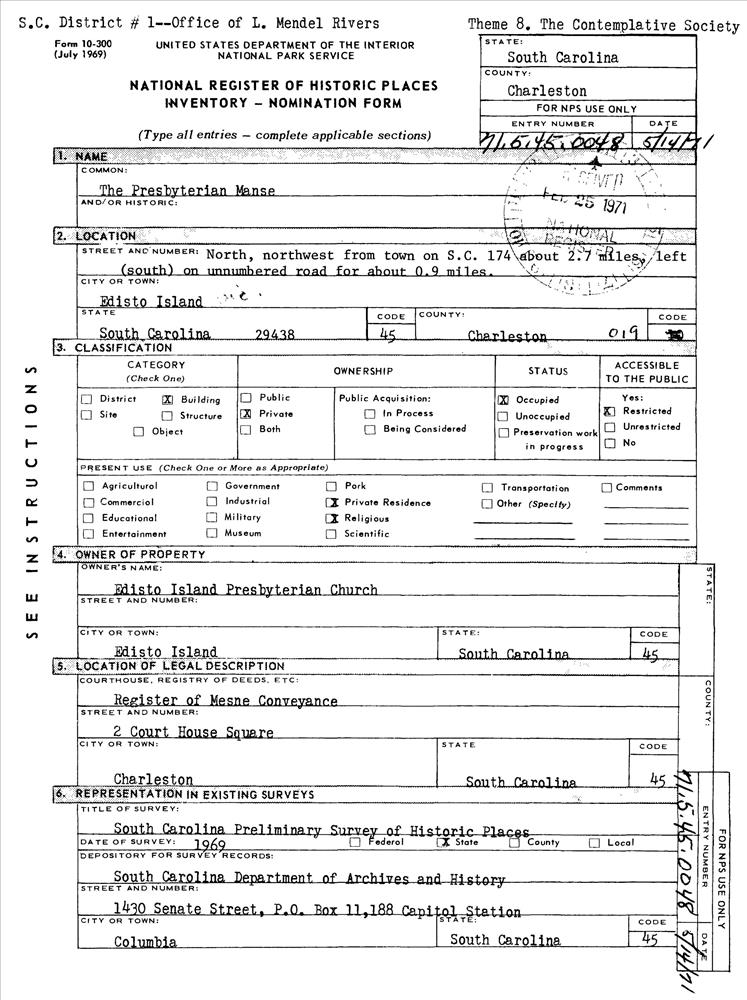 S.C. District # 1--Office of L. Mendel Rivers
Theme 8. The Contemplative Society
Form 10-300
(July 1969)
UNITED STATES DEPARTMENT OF THE INTERIOR
NATIONAL PARK SERVICE
NATIONAL REGISTER OF HISTORIC PLACES
INVENTORY – NOMINATION FORM
(Type all entries – complete applicable sections)
STATE:
South Carolina
COUNTY:
Charleston
FOR NPS USE ONLY
ENTRY NUMBER DATE
71.5.45.0048 5/14/71
SEE INSTRUCTIONS
1. NAME
COMMON:
The Presbyterian Manse
AND/OR HISTORIC:
RECEIVED
FEB 25 1971
NATIONAL
REGISTER
2. LOCATION
STREET AND NUMBER: North, northwest from town on S.C. 174 about 2.7 miles, left
(south) on unnumbered road for about 0.9 miles.
CITY OR TOWN:
Edisto Island
STATE CODE COUNTY: CODE
South Carolina 29438 45 Charleston 019
3. CLASSIFICATION
CATEGORY
(Check One)
OWNERSHIP
STATUS
ACCESSIBLE
TO THE PUBLIC
District X Building
Site Structure
Object
Public
X Private
Both
Public Acquisition:
In Process
Being Considered
X Occupied
Unoccupied
Preservation work
in progress
Yes:
X Restricted
Unrestricted
No
PRESENT USE (Check One or More as Appropriate)
Agricultural Government Park Transportation Comments
Commercial Industrial X Private Residence Other (Specify)
Educational Military X Religious
Entertainment Museum Scientific
4. OWNER OF PROPERTY
OWNER'S NAME:
Edisto Island Presbyterian Church
STREET AND NUMBER:
CITY OR TOWN: STATE: CODE
Edisto Island South Carolina 45
STATE:
5. LOCATION OF LEGAL DESCRIPTION
COURTHOUSE, REGISTRY OF DEEDS, ETC:
Register of Mesne Conveyance
STREET AND NUMBER:
2 Court House Square
CITY OR TOWN: STATE CODE
Charleston South Carolina 45
COUNTY:
6. REPRESENTATION IN EXISTING SURVEYS
TITLE OF SURVEY:
South Carolina Preliminary Survey of Historic Places
DATE OF SURVEY: 1969 Federal X State County Local
DEPOSITORY FOR SURVEY RECORDS:
South Carolina Department of Archives and History
STREET AND NUMBER:
1430 Senate Street, P.O. Box 11,188 Capitol Station
CITY OR TOWN: STATE: CODE
Columbia South Carolina 45
71.5.45.0048 5/14/71
ENTRY NUMBER DATE
FOR NPS USE ONLY